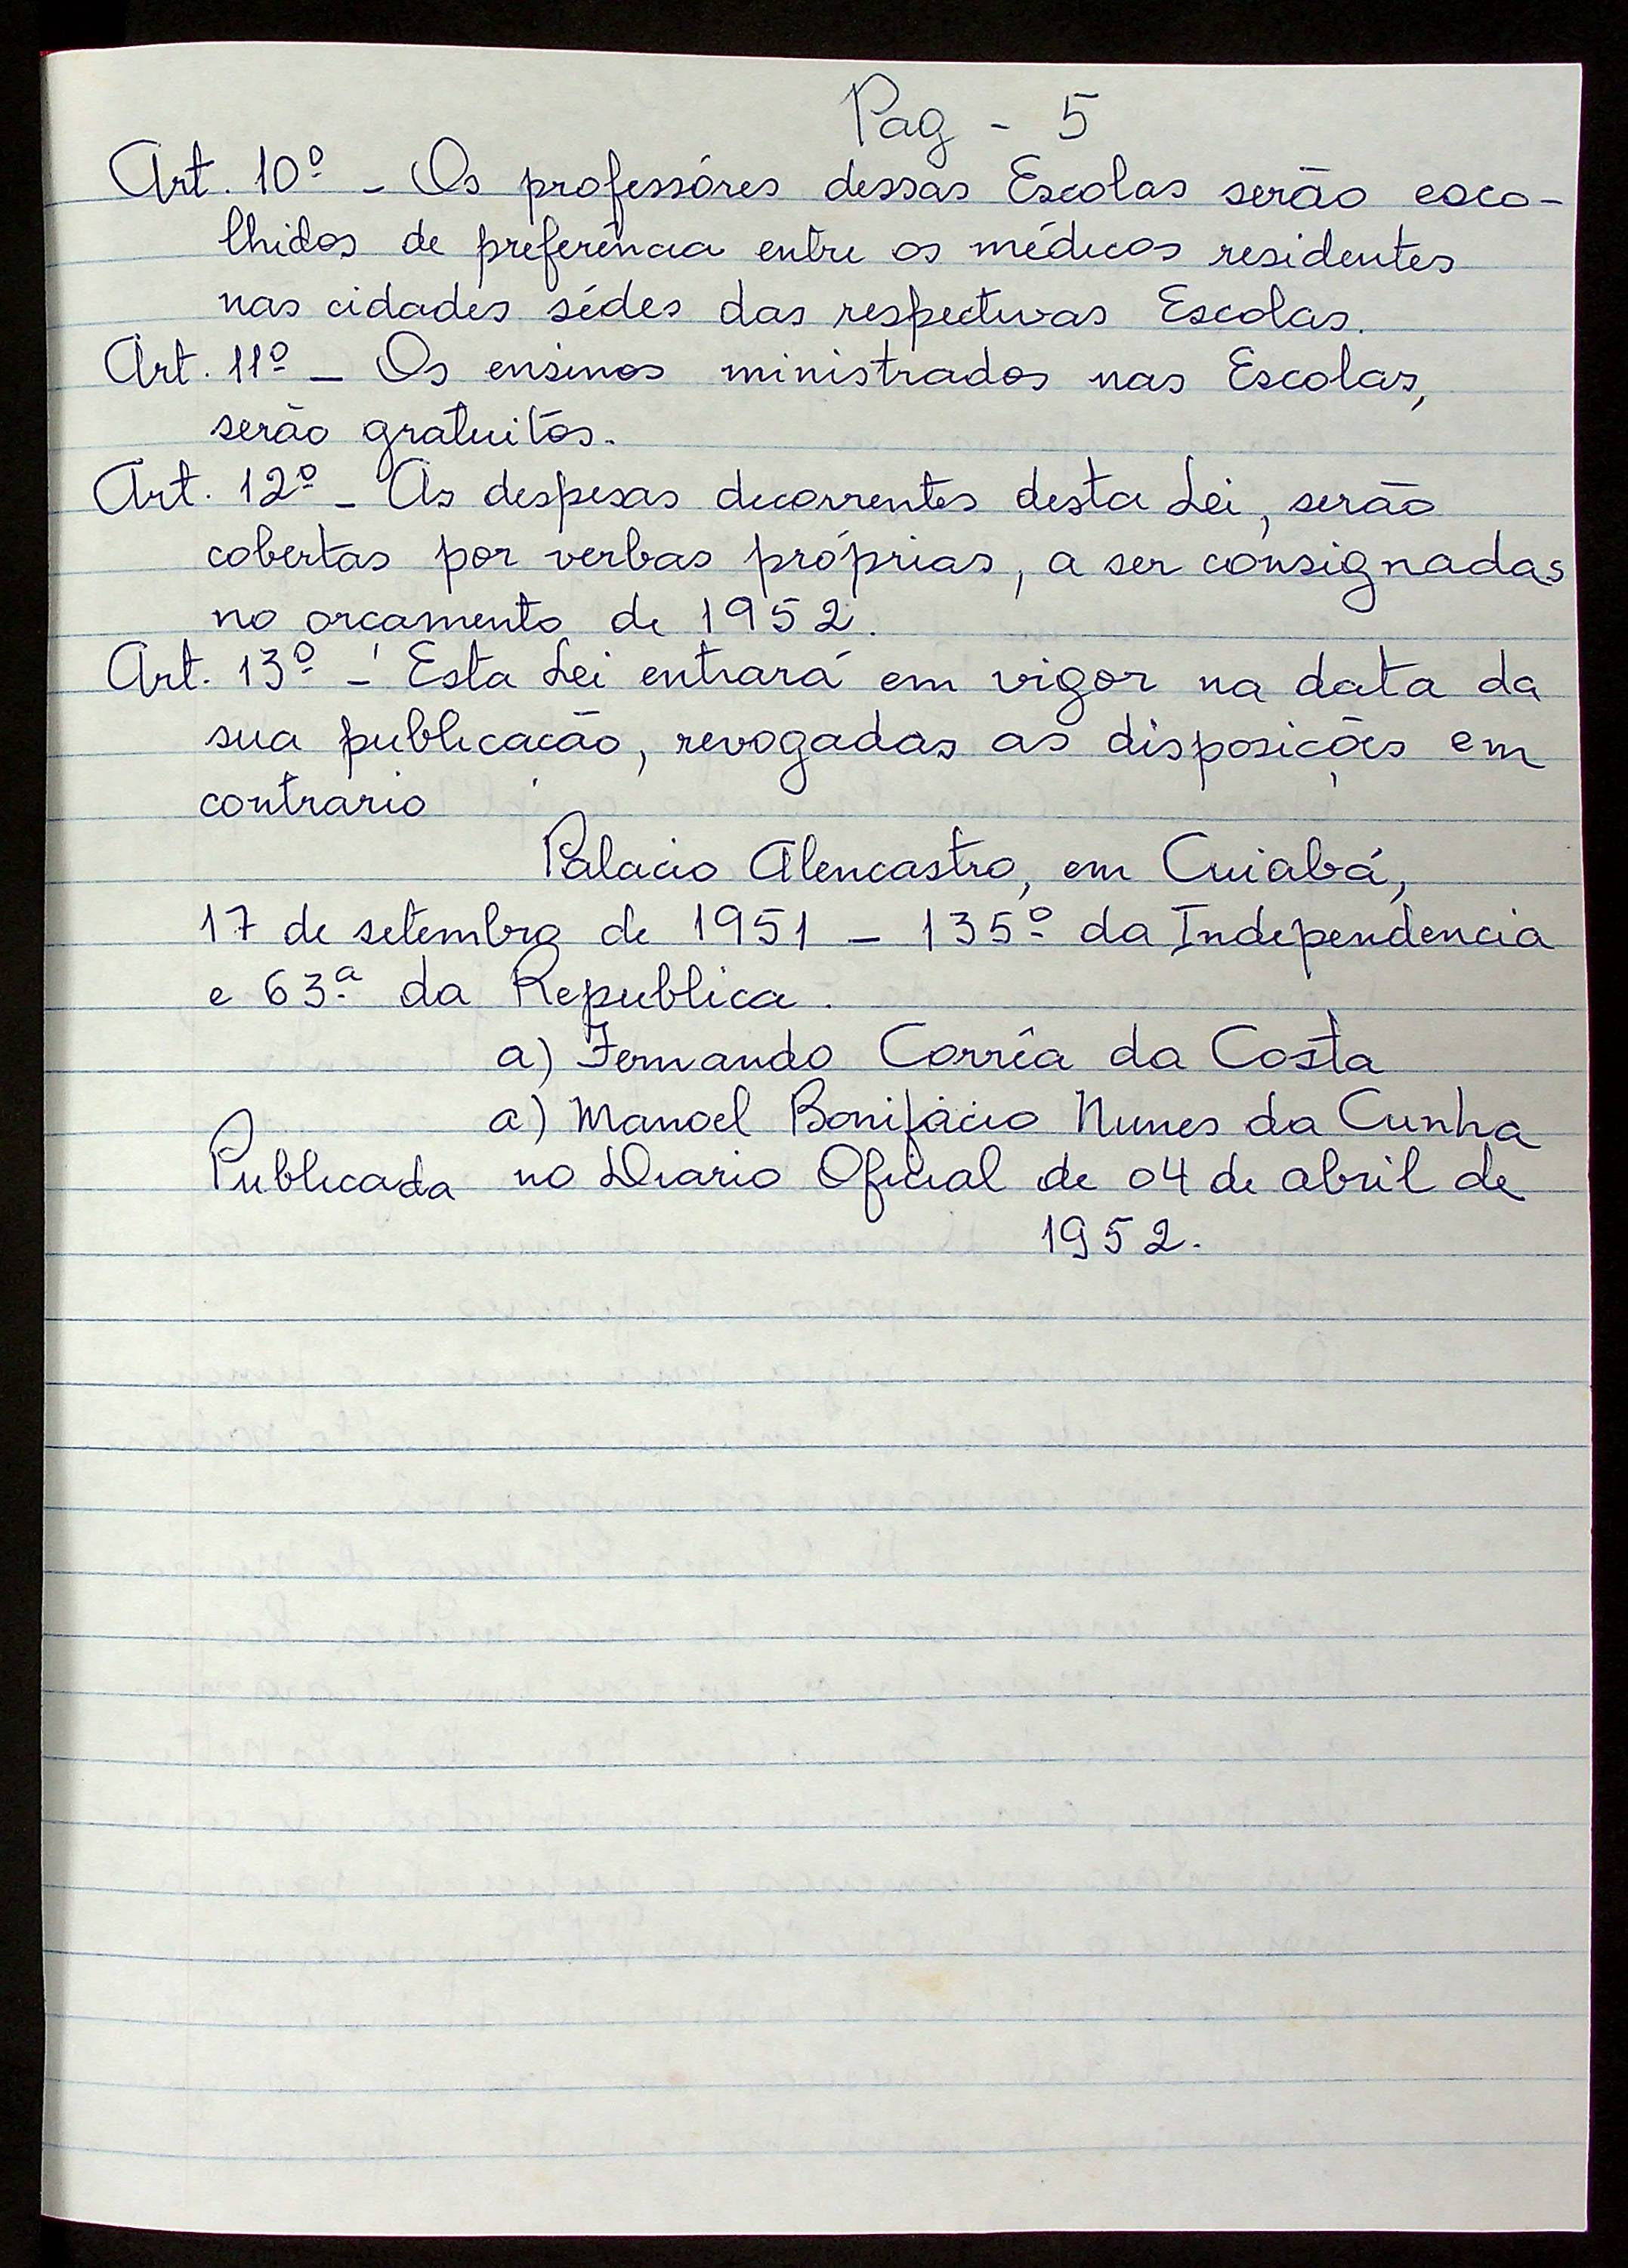 Pag - 5
Art. 10º - Os professóres dessas Escolas serão esco-
lhidos de preferência entre os médicos residentes
nas cidades sédes das respectivas Escolas.
Art. 11º - Os ensinos ministrados nas Escolas,
serão gratuitos.
Art. 12º - As despesas decorrentes desta Lei, serão
cobertas por verbas próprias, a ser consignadas
no orçamento de 1952.
Art. 13º - Esta Lei entrará em vigor na data da
sua publicação, revogadas as disposições em
contrario
Palacio Alencastro, em Cuiabá,
17 de setembro de 1951 - 135º da Independencia
e 63ª da Republica.
a) Fernando Corrêa da Costa
a) Manoel Bonifácio Nunes da Cunha
Publicada no Diario Oficial de 04 de abril de
1952.